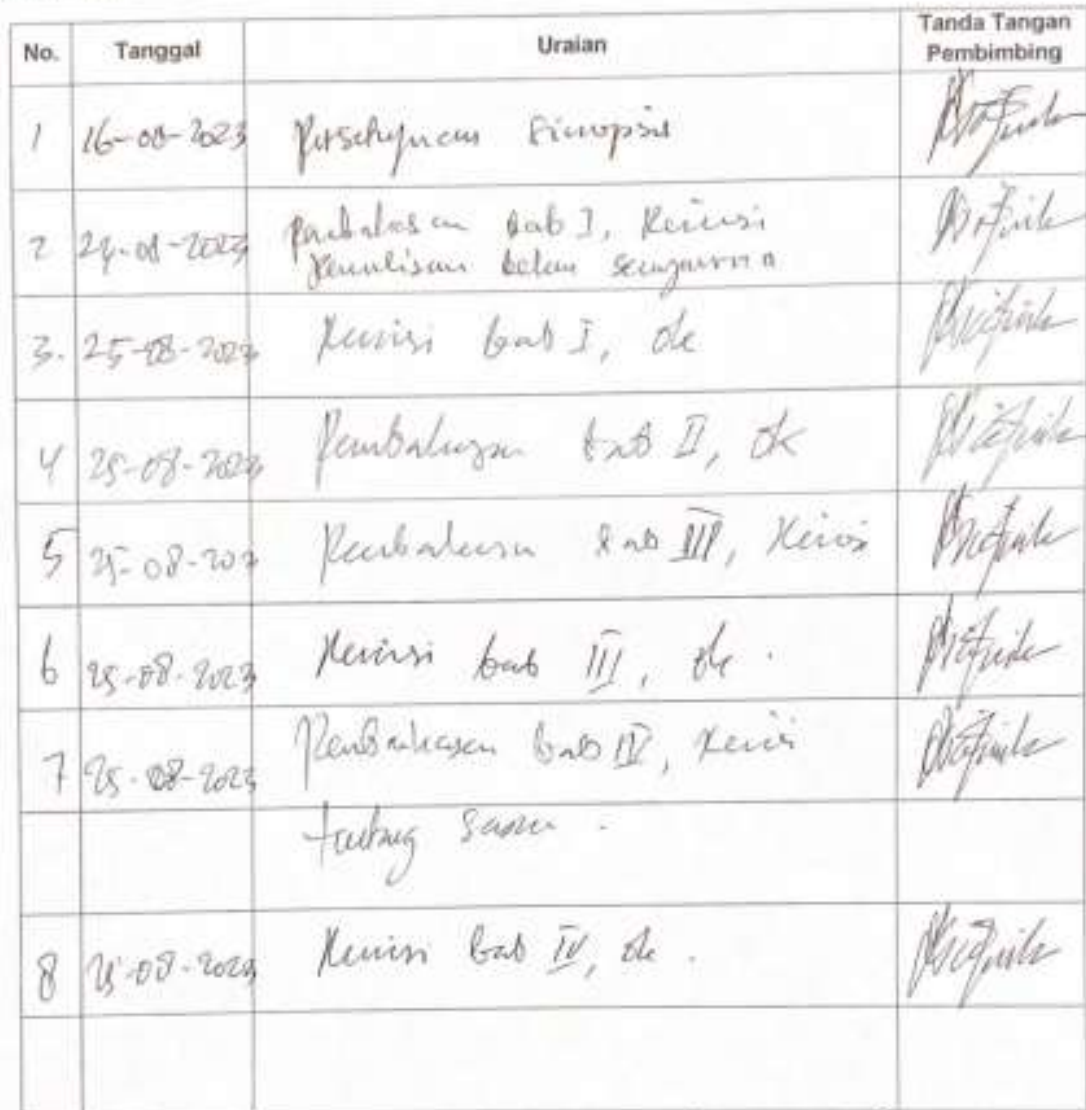 No. Tanggal Uraian Tanda Tangan
Pembimbing
1 16-08-2023 Persetujuan Sinopsis
2 24-08-2023 Pembahasan bab I, Revisi
Penulisan belum sempurna
3. 25-08-2023 Revisi bab I, ok
4 25-08-2023 Pembahasan bab II, ok
5 25-08-2023 Pembahasan bab III, Revisi
6 25-08-2023 Revisi bab III, ok.
7 25-08-2023 Pembahasan bab IV, Revisi
tentang saran.
8 25-08-2023 Revisi bab IV, ok.